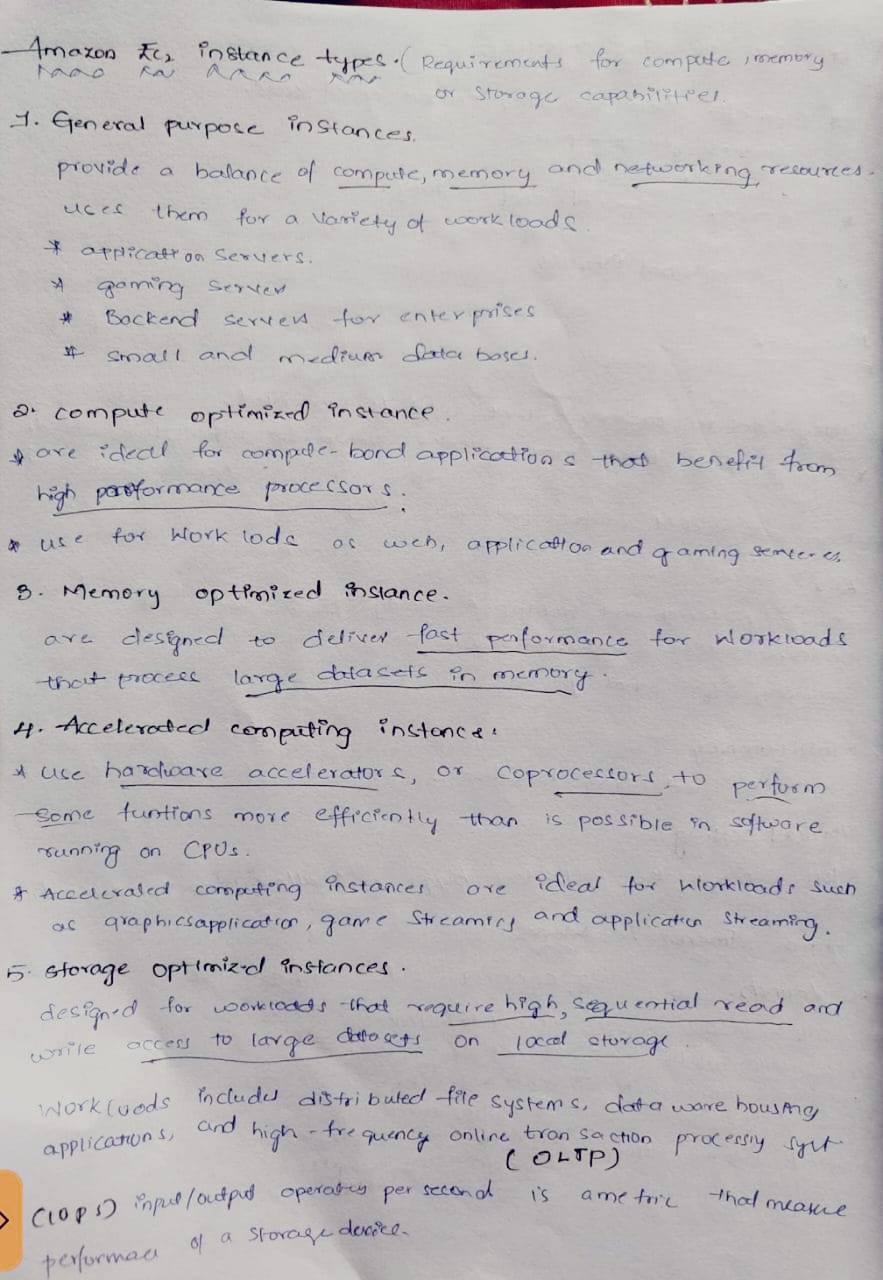 Amazon Ec2 instance types. ( Requirements for compute, memory
or storage capabilities.
1. General purpose instances.
provide a balance of compute, memory and networking resources.
uses them for a variety of work loads.
* application servers.
* gaming server
* Backend servers for enterprises
* small and medium data bases.
2. compute optimized instance.
* are ideal for compute-bond applications that benefit from
high performance processors.
* use for work lods as web, application and gaming
3. Memory optimized instance.
are designed to deliver fast performance for workloads
that process large datasets in memory.
4. Accelerated computing instance:
* use hardware accelerators, or coprocessors, to perform
some funtions more efficiently than is possible in software
running on CPUs.
* Accelerated computing instances are ideal for workloads such
as graphicsapplication, game streaming and application streaming.
5. storage optimized instances.
designed for workloads that require high, sequential read and
write access to large datasets on local storage.
Workloods includes distributed file systems, data ware housing
applications, and high-frequency online transaction processing
(OLTP)
(IOPS) input/output operating per second is a metric that measure
performace of a storage device.